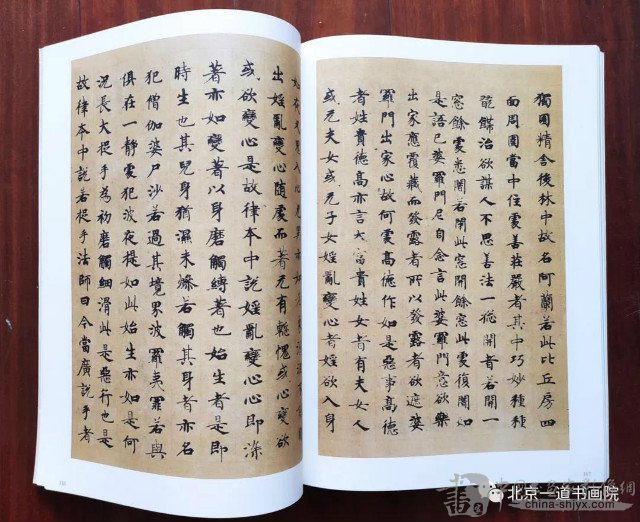 獨園精舍後林中故名阿蘭若此比丘房四
面周圍當中住處善莊嚴者其中巧妙種種
餙治欲謀人不思善法一窓開者若開一
窓餘處悉闇若閉此窓開餘窓此處復闇如
是語已婆羅門尼自念言此婆羅門意欲樂
出家應覆藏而發露者所以發露者欲遮婆
羅門出家心故何處高德作如是惡事高德
者姓貴德高亦言大富貴姓女者有夫女人
或无夫女或无子女婬亂變心者婬欲入身
出婬亂變心随處而著无有慙愧或心變欲
或欲變心是故律本中說婬亂變心心即染
著亦如變著以身磨觸縛著也始生者是即
時生也其兒身猶濕未燥若觸其身者亦名
犯僧伽婆尸沙若過其境界波羅夷罪若與
俱在一靜處犯波夜提如此始生亦如是何
況長大捉手為初磨觸細滑此是惡行也是
故律本中說若捉手法師曰今當廣說手者
北京一道书画院
china-shjyx.com